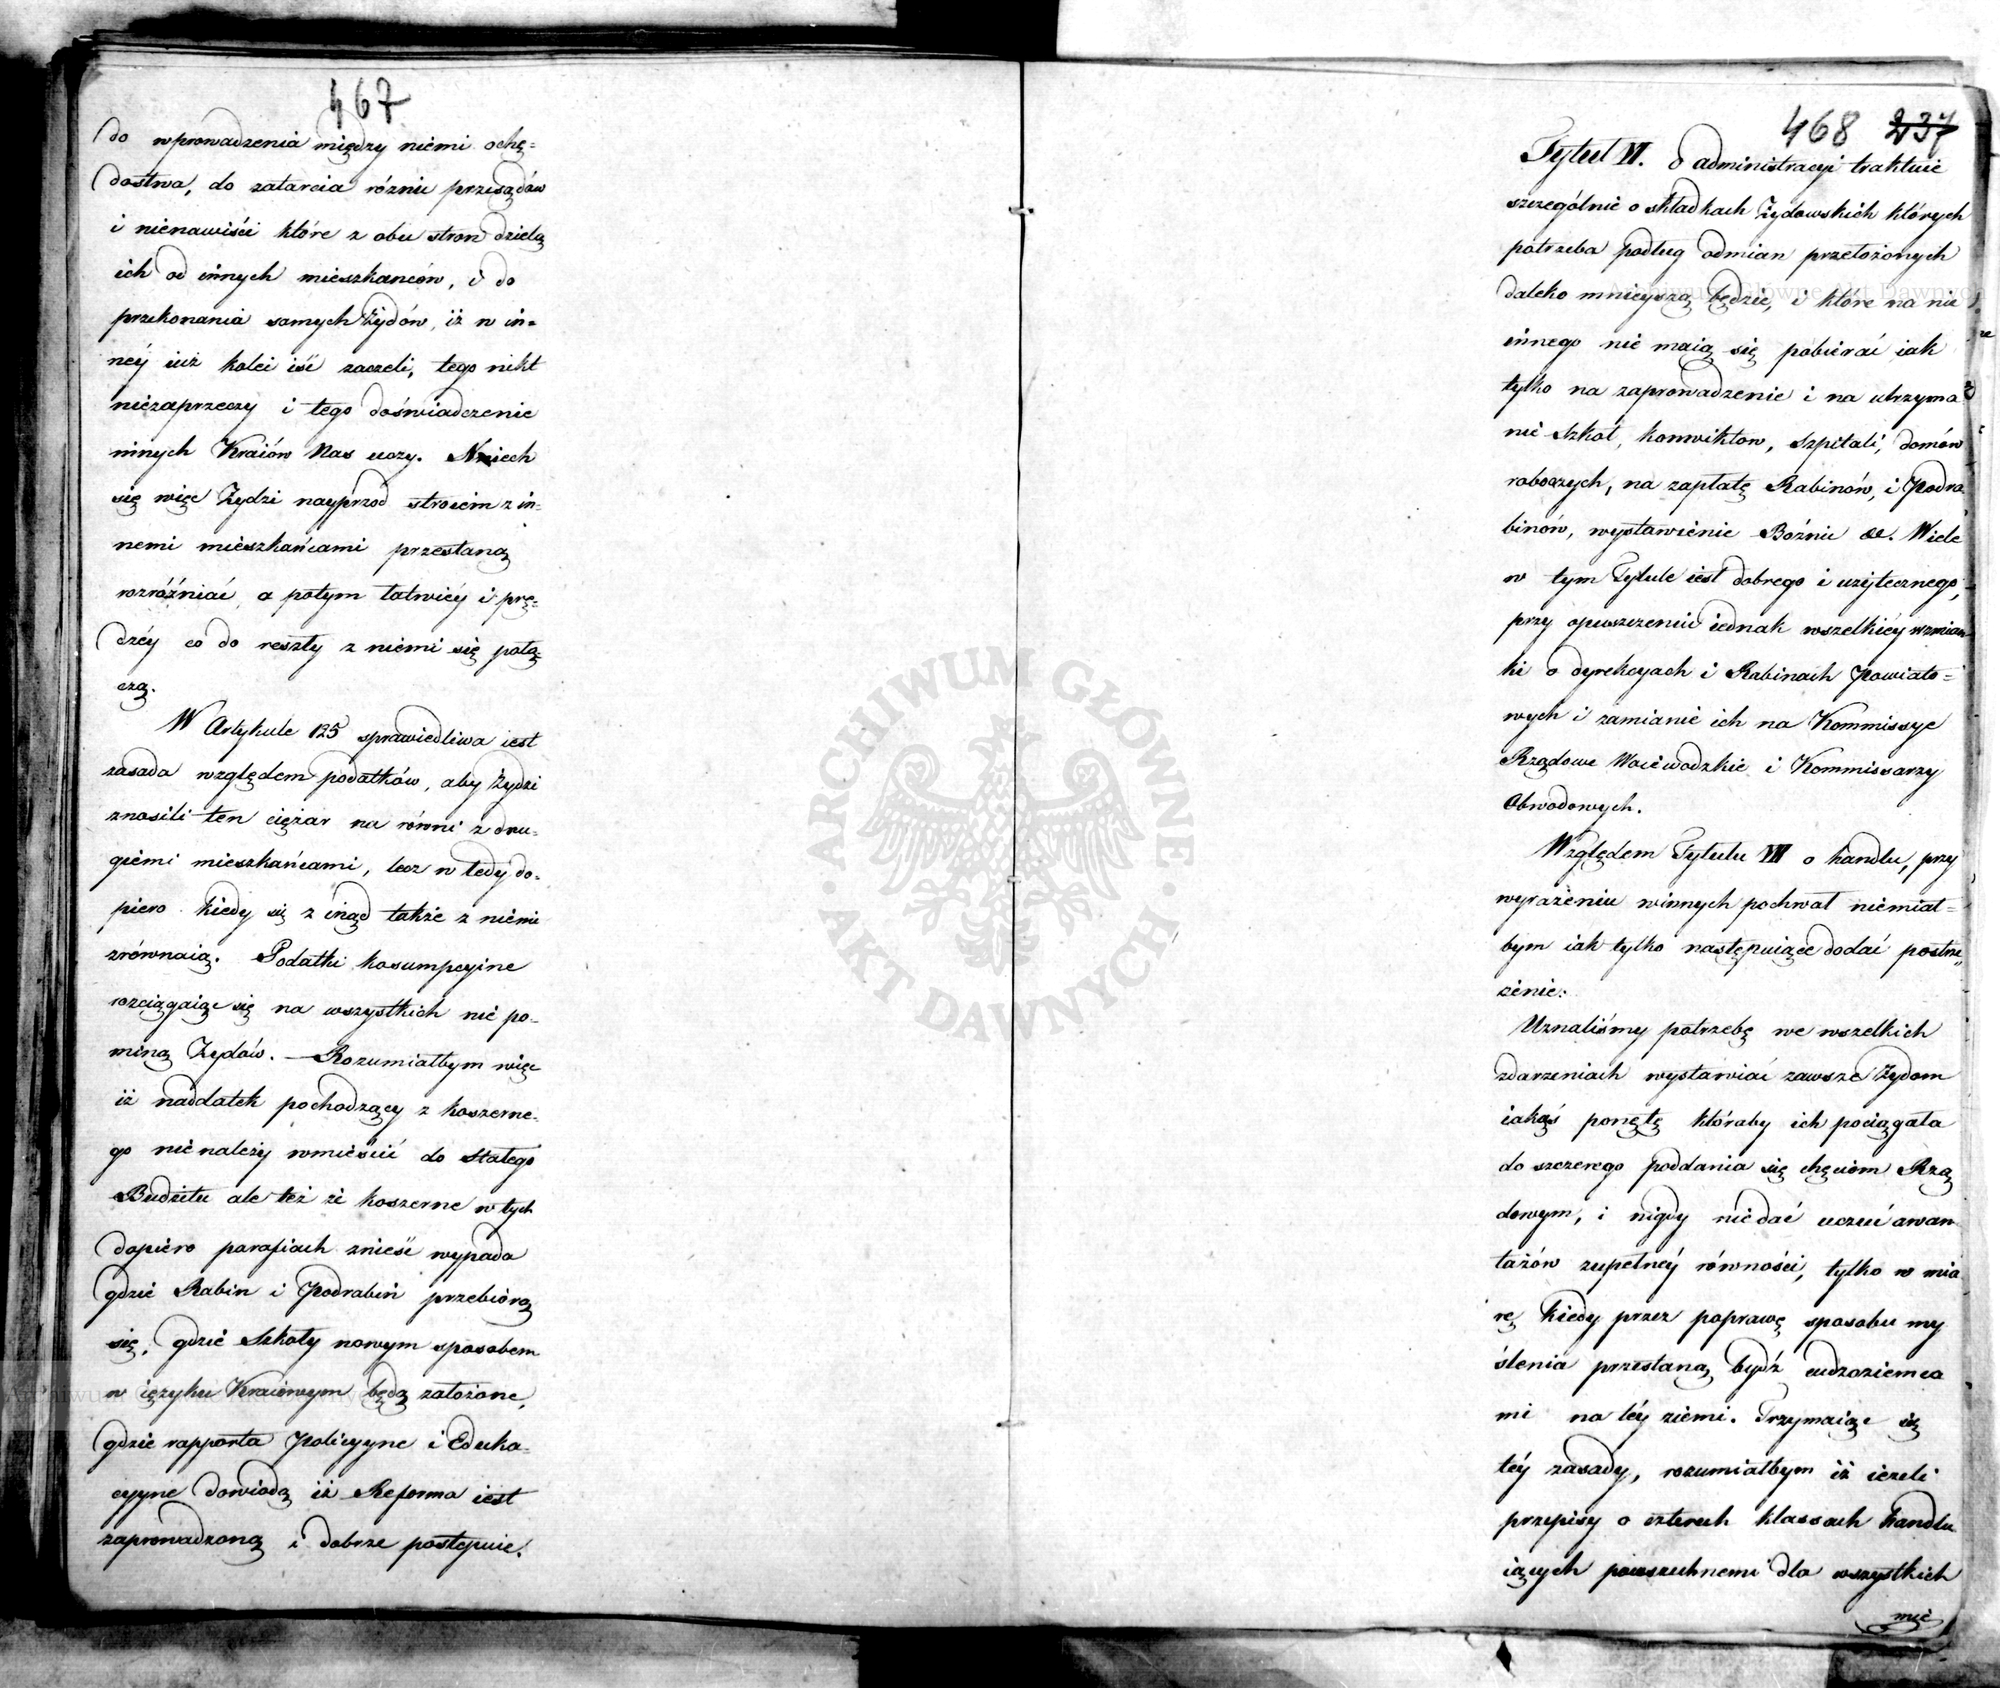 467
do wprowadzenia między niemi ochę=
dostwa, do zatarcia różnic przesądów
i nienawiści które z obu stron dzielą
ich od innych mieszkancow, i do
przekonania samych Żydów, iż w in=
ney iuż kolei iść zaczeli, tego nikt
niezaprzeczy i tego doświadczenie
innych Kraiów Nas uczy. Niech
się więc Żydzi nayprzod stroiem z in=
nemi mieszkańcami przestaną
rozróżniać, a potym łatwiéy i prę=
dzéy co do reszty z niemi się połą=
czą.
W Artykule 125 sprawiedliwa iest
zasada względem podatków, aby Żydzi
znosili ten ciężar na równi z dru=
giemi mieszkańcami, lecz wtedy do=
piero kiedy się z inąd także z niemi
zrównaią. Podatki kosumpcyine
rozciągaiące się na wszystkich nie po=
miną Żydów. — Rozumiałbym więc
iż naddatek pochodzący z koszerne=
go nienależy wmieścić do stałego
Budżetu ale też że koszerne w tych
dopiero parafiach znieść wypada
gdzie Rabin i Podrabin przebiorą
się, gdzie Szkoły nowym sposobem
w ięzyku Kraiowym będą założone,
gdzie rapporta Policyyne i Eduka=
cyyne dowiodą iż Reforma iest
zaprowadzoną i dobrze postępuie.
468 237
Tytuł VI. o administracyi traktuie
szczególnie o składkach Żydowskich których
potrzeba podług odmian przełożonych
daleko mnieyszą będzie, i które na nic
innego nie maią się pobierać iak
tylko na zaprowadzenie i na utrzyma
nie Szkół, konwiktow, szpitali, domów
roboczych, na zapłatę Rabinów, i Podra
binów, wystawienie Bóźnic &c. Wiele
w tym Tytule iest dobrego i użytecznego,
przy opuszczeniu iednak wszelkiéy wzmian=
ki o dyrekcyach i Rabinach Powiato=
wych i zamianie ich na Kommissye
Rządowe Woiewodzkie i Kommissarzy
Obwodowych.
Względem Tytułu VII o handlu, przy
wyrażeniu winnych pochwał niemiał=
bym iak tylko następuiące dodać postrze=
żenie:
Uznaliśmy potrzebę we wszelkich
zdarzeniach wystawiać zawsze Żydom
iakąś ponętę któraby ich pociągała
do szczerego poddania się chęciom Rzą
dowym, i nigdy niedać uczuć awan
tażów zupełnéy równości, tylko w mia
rę kiedy przez poprawę sposobu my
ślenia przestaną bydź cudzoziemca
mi na téy ziemi. Trzymaiąc się
téy zasady, rozumiałbym iż ieżeli
przepisy o czterech klassach handlu
iących powszechnemi dla wszystkich
mie
ARCHIWUM GŁÓWNE
AKT DAWNYCH